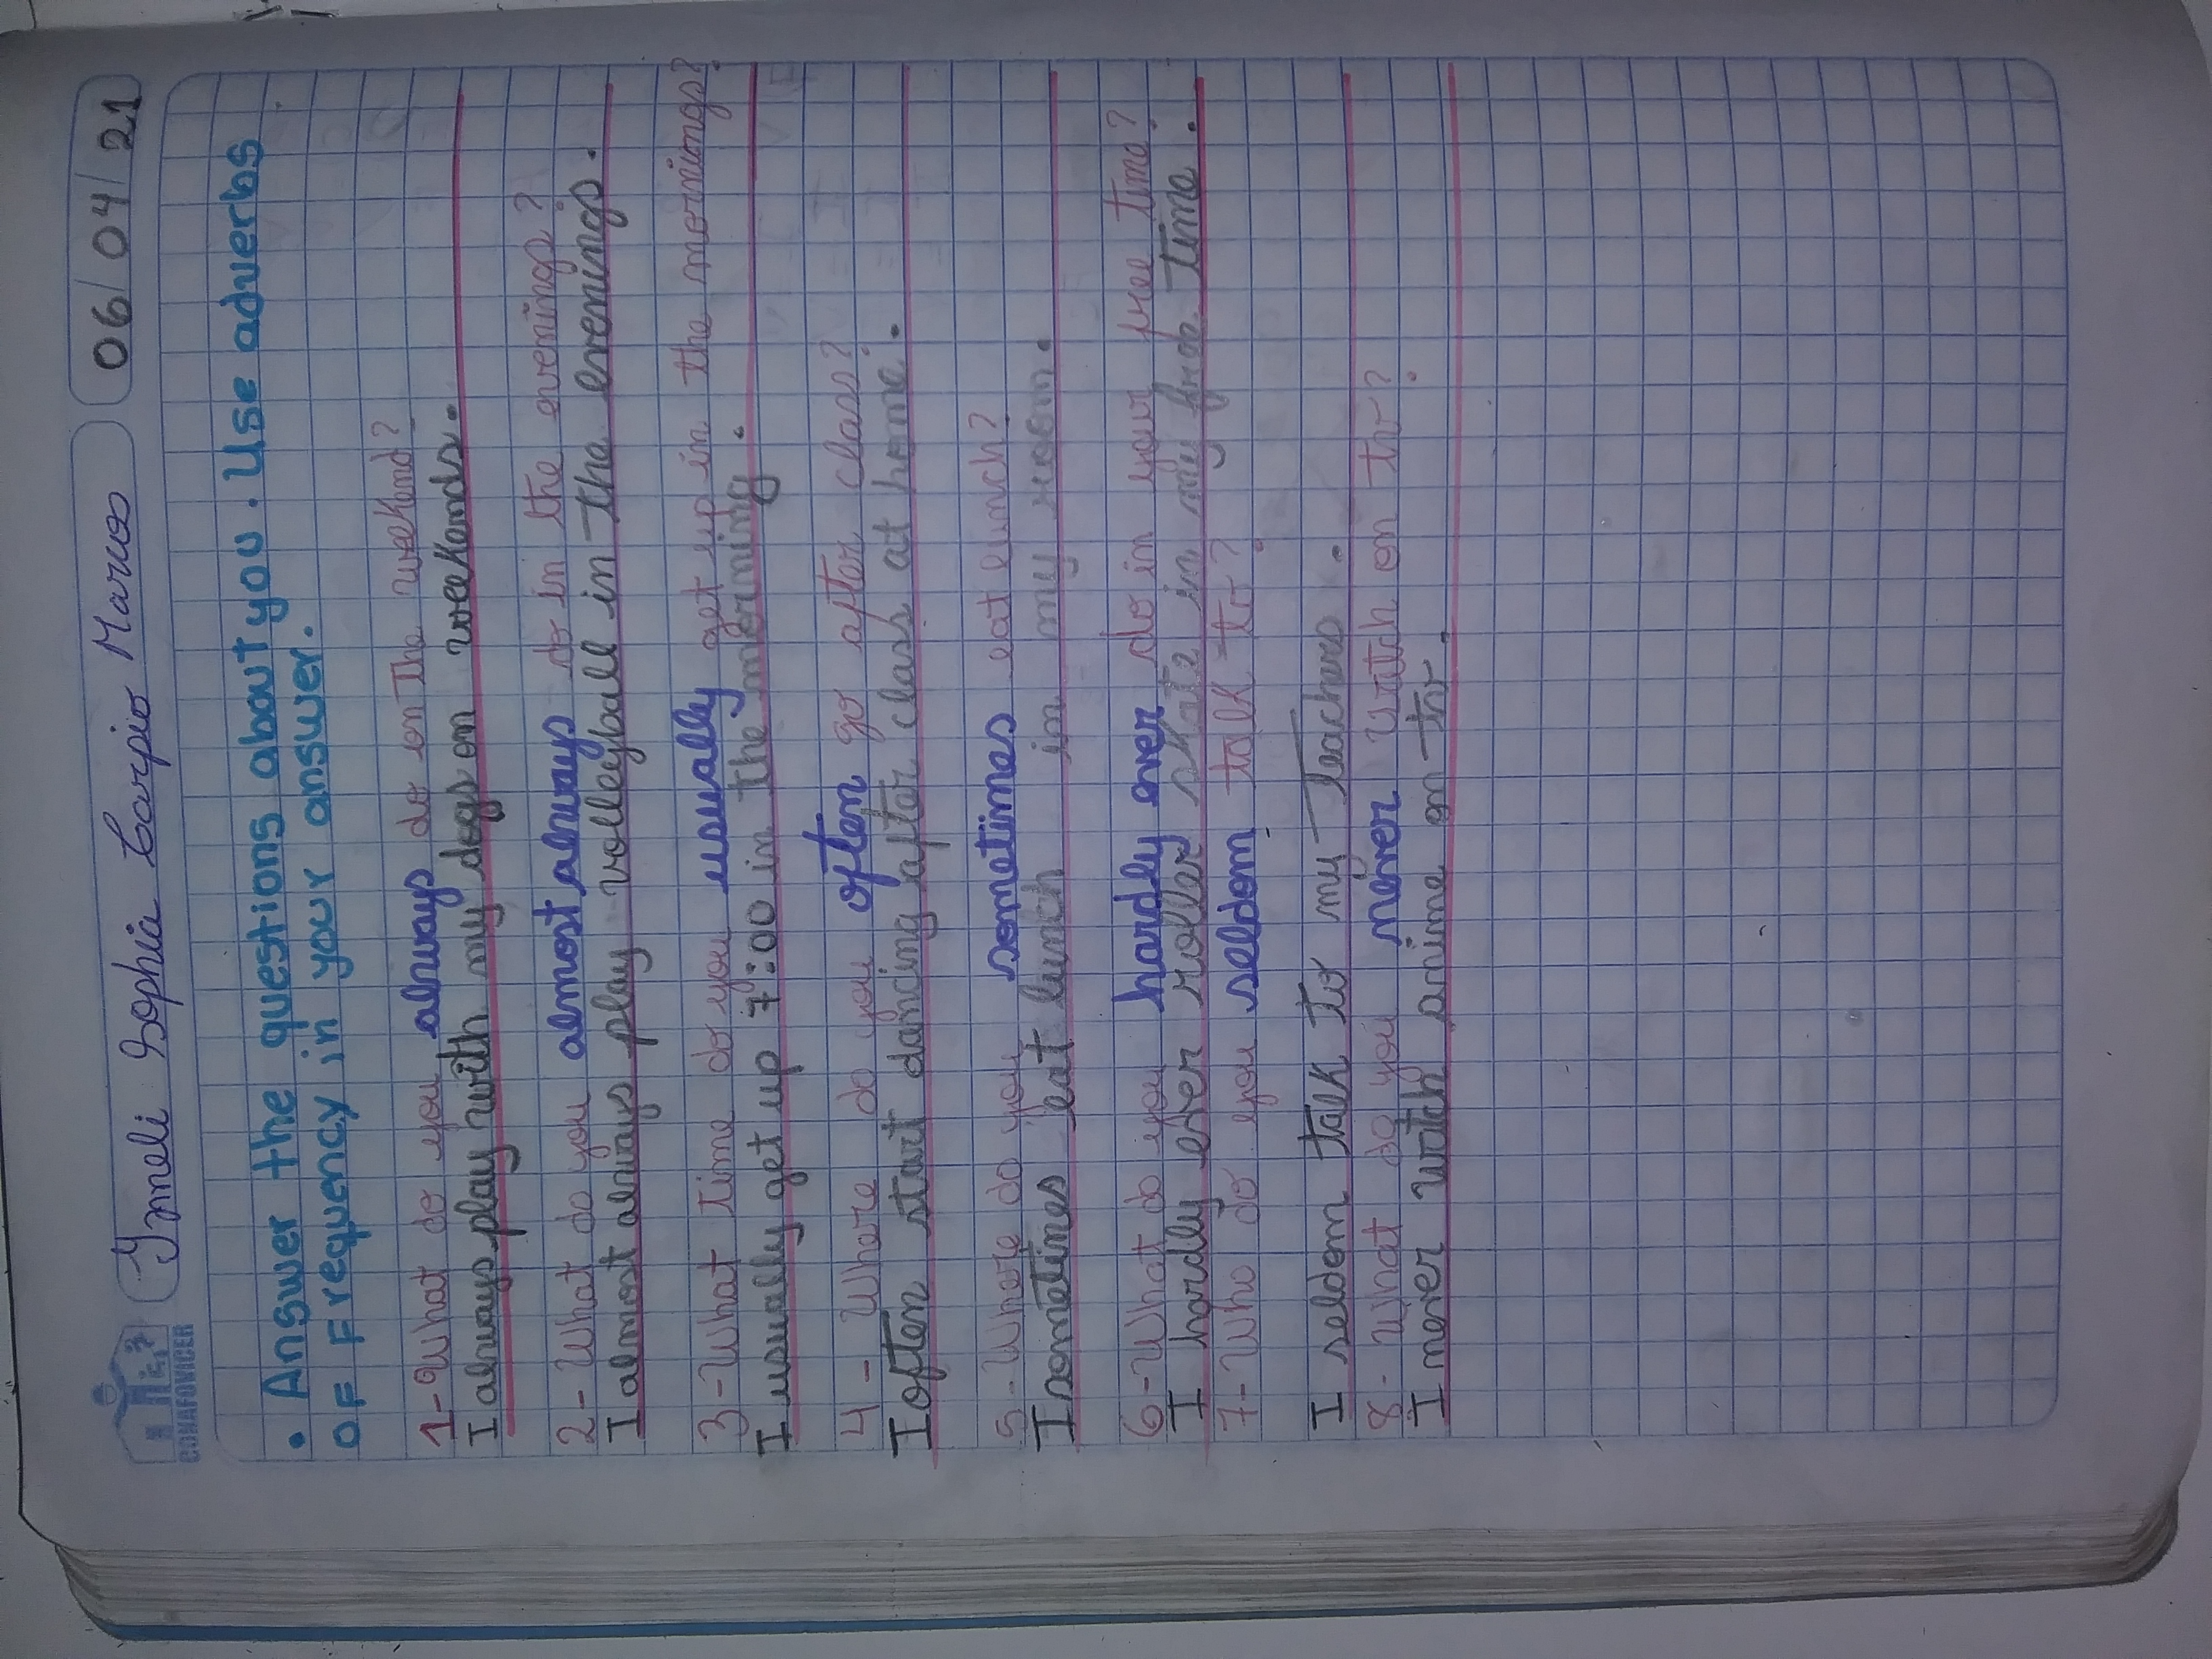 CONAFOVICER
Ymeli Sophia Carpio Marcos
06/04/21
• Answer the questions about you. Use adverbs
OF Frequency in your answer.
1-What do you always do on The weekend?
I always play with my dogs on weekends.
2- What do you almost always do in the evenings?
I almost always play volleyball in The evenings.
3-What Time do you usually get up in the mornings?
I usually get up 7:00 in The morning.
4- Where do you often go after class?
I often start dancing after class at home.
5-Where do you sometimes eat lunch?
I sometimes eat lunch in my room.
6-What do you hardly ever do in your free time?
I hardly ever roller skate in my free Time.
7-Who do you seldom talk to?
I seldom talk To my Teachers.
8- What do you never watch on tv?
I never watch anime on tv.